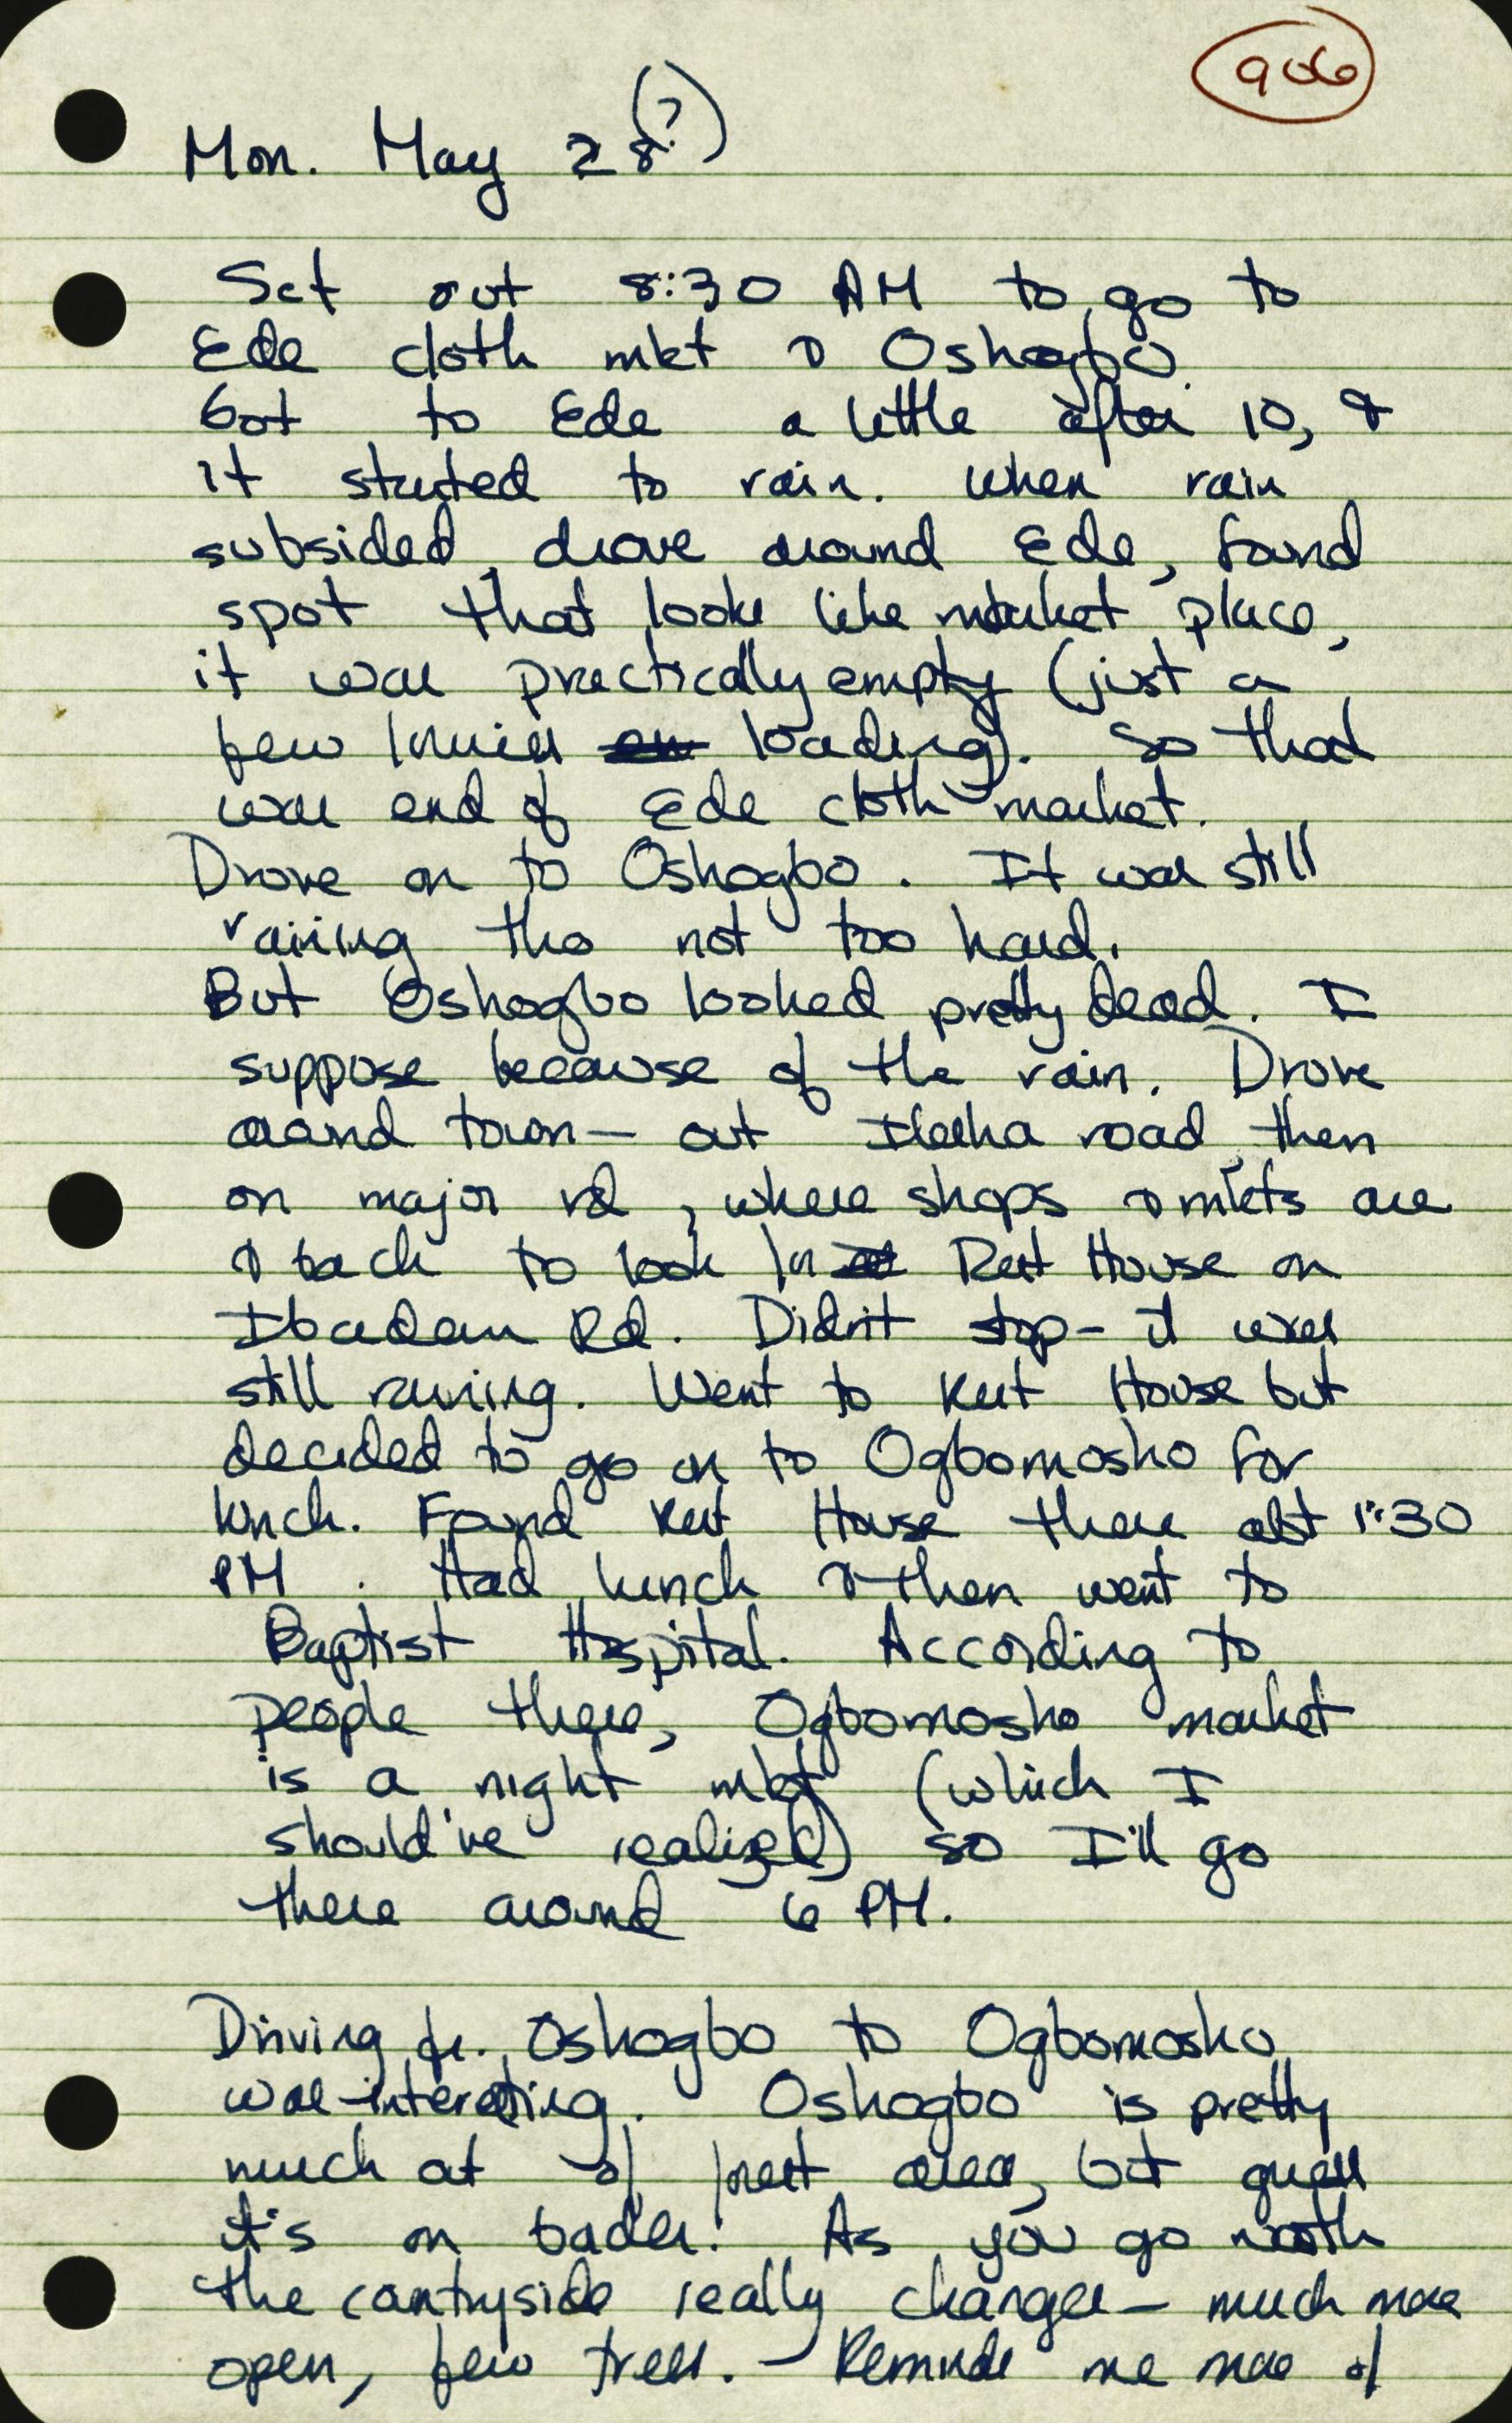 906
Mon. May 28(?)
Set out 8:30 AM to go to
Ede cloth mkt & Oshogbo.
Got to Ede a little after 10, &
it started to rain. When rain
subsided, drove around Ede, found
spot that looks like market place,
it was practically empty (just a
few lorries loading). So that
was end of Ede cloth market.
Drove on to Oshogbo. It was still
raining tho not too hard.
But Oshogbo looked pretty dead. I
suppose because of the rain. Drove
around town — out Ilesha road, then
on major rd, where shops & mkts are
& back to look for Rest House on
Ibadan Rd. Didn't stop - it was
still raining. Went to Rest House but
decided to go on to Ogbomosho for
lunch. Found Rest House there abt 1:30
PM. Had lunch & then went to
Baptist Hospital. According to
people there, Ogbomosho market
is a night mkt (which I
should've realized) so I'll go
there around 6 PM.
Driving fr. Oshogbo to Ogbomosho
was interesting. Oshogbo is pretty
much at of forest area, but guess
it's on border. As you go north
the countryside really changes — much more
open, few trees. — Reminds me more of